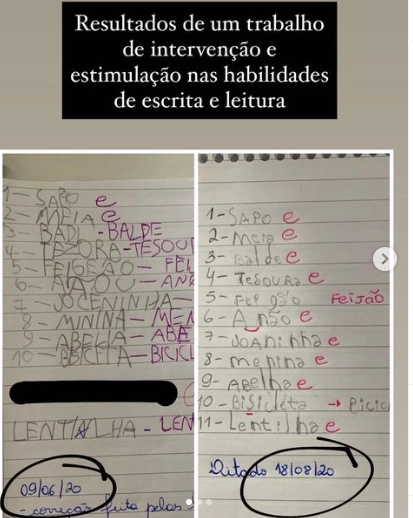 Resultados de um trabalho
de intervenção e
estimulação nas habilidades
de escrita e leitura
1- SAPO e
2- MEIA e
3- BADI - BALDE
4- TEZORA - TESOUR
5- FEIGEÃO - FEI
6- ANAOU - ANÃ
7- JOCENINHA -
8- MININA - MEN
9- ABELIA - ABE
10- BBICETA - BICICL
LENTILHA - LEN
09/06/20
- correção feita pelos
1- SAPO e
2- Meia e
3- Balde e
4- Tesoura e
5- Fei gão Feijão
6- A não e
7- JoAninha e
8- menina e
9- Abelha e
10- Bisicleta → Bicic
11- Lentilha e
Ditado 18/08/20